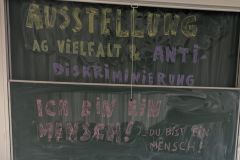 AUSSTELLUNG
AG VIELFALT & ANTI-
DISKRIMINIERUNG
ICH BIN EIN
MENSCH!
DU BIST EIN
MENSCH!